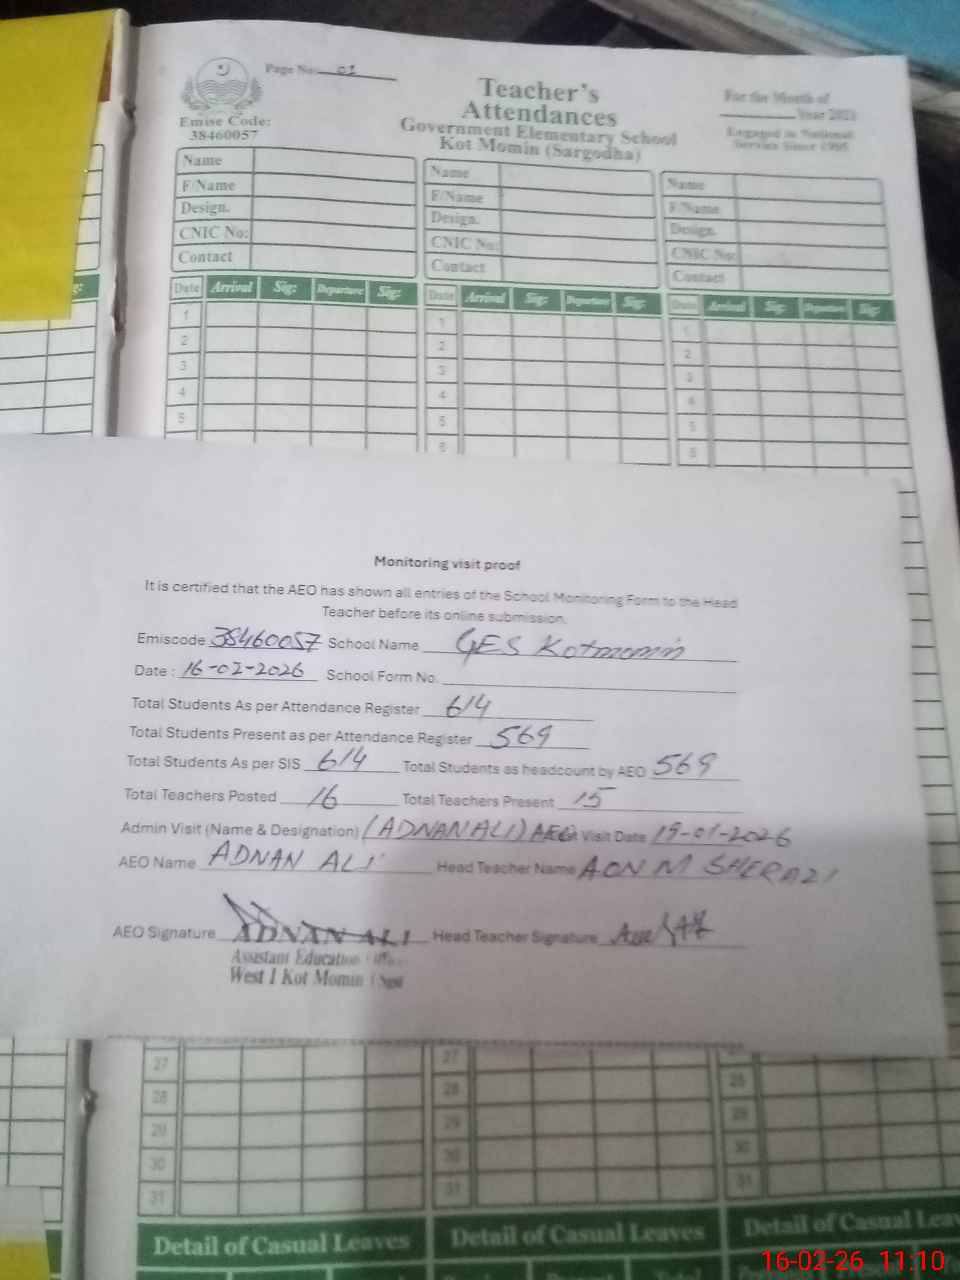 Page No: 01
Teacher's
Attendances
Government Elementary School
Kot Momin (Sargodha)
For the Month of
Year 202
Engaged in National
Service Since 1905
Emise Code:
38460057
Name
F/Name
Design.
CNIC No:
Contact
Name
F/Name
Design.
CNIC No:
Contact
Name
F/Name
Design.
CNIC No:
Contact
Date Arrival Sig: Departure Sig: Date Arrival Sig: Departure Sig: Date Arrival Sig: Departure Sig:
1 1 1
2 2 2
3 3 3
4 4 4
5 5 5
6 6
Monitoring visit proof
It is certified that the AEO has shown all entries of the School Monitoring Form to the Head
Teacher before its online submission.
Emiscode 38460057 School Name GES Kotmomin
Date : 16-02-2026 School Form No.
Total Students As per Attendance Register 614
Total Students Present as per Attendance Register 569
Total Students As per SIS 614 Total Students as headcount by AEO 569
Total Teachers Posted 16 Total Teachers Present 15
Admin Visit (Name & Designation) (ADNAN ALI) AEO Visit Date 19-01-2026
AEO Name ADNAN ALI Head Teacher Name AON M SHERAZI
AEO Signature ADNAN ALI Head Teacher Signature
Assistant Education
West I Kot Momin
27 27
28 28 28
29 29 29
30 30 30
31 31 31
Detail of Casual Leaves Detail of Casual Leaves Detail of Casual Lea
16-02-26 11:10